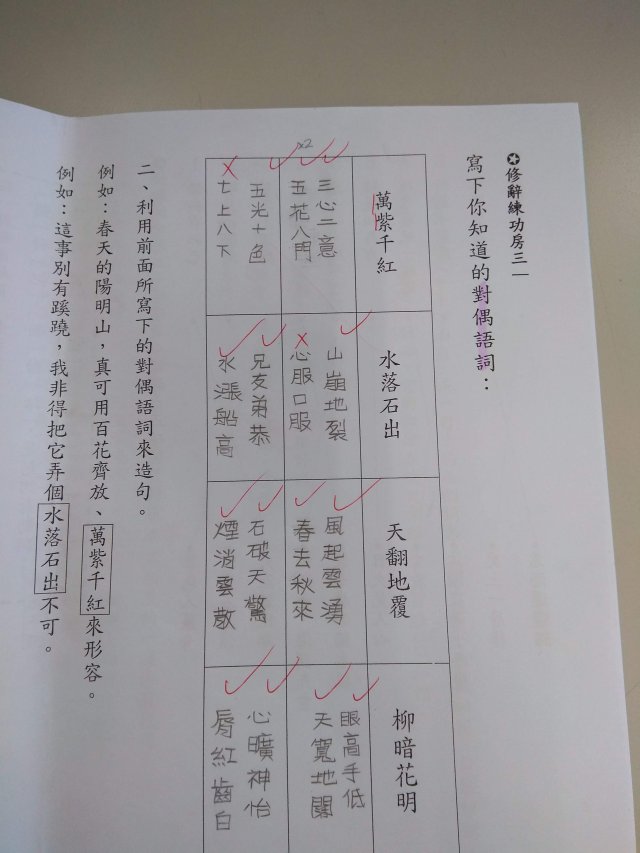 修辭練功房三
寫下你知道的對偶語詞：
萬紫千紅
三心二意
五花八門
五光十色
七上八下
x2
水落石出
山崩地裂
心服口服
兄友弟恭
水漲船高
天翻地覆
風起雲湧
春去秋來
石破天驚
煙消雲散
柳暗花明
眼高手低
天寬地闊
心曠神怡
唇紅齒白
二、利用前面所寫下的對偶語詞來造句。
例如：春天的陽明山，真可用百花齊放、萬紫千紅來形容。
例如：這事別有蹊蹺，我非得把它弄個水落石出不可。